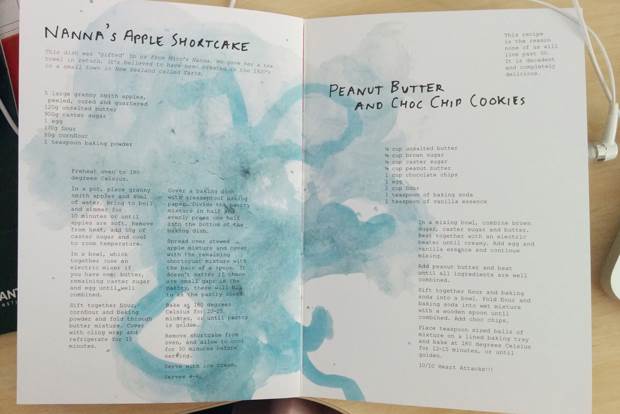 NANNA'S APPLE SHORTCAKE
This dish was 'gifted' to us from Nanna. We gave her a tea
towel in return. It's believed to have been created in the 1920's
in a small town in New Zealand called
5 large granny smith apples,
peeled, cored and quartered
120g unsalted butter
caster sugar
1 egg
flour
cornflour
1 teaspoon baking powder
Preheat oven to 180
degrees Celsius.
In a pot, place granny
smith apples and
water. Bring to boil
and simmer for
10 minutes or until
apples are soft. Remove
from heat, add of
caster sugar and cool
to room temperature.
In a bowl,
together using an
electric mixer if
you have one, butter,
remaining caster sugar
and egg until well
combined.
Sift together flour,
cornflour and baking
powder and fold through
butter mixture. Cover
with cling wrap and
refrigerate for 15
minutes.
Cover a baking dish
with greaseproof baking
paper. Divide the pastry
mixture in half and
evenly press one half
into the bottom of the
baking dish.
Spread over stewed
apple mixture and cover
with the remaining
shortcrust mixture with
the back of a spoon. It
doesn't matter if there
are small gaps in the
pastry, there will
to in the
Bake at 180 degrees
Celsius for 20-25
minutes, or until pastry
is golden.
Remove shortcake from
oven, and allow to cool
for 30 minutes before
serving.
Serve with ice cream.
Serves
This recipe
is the reason
none of us will
live past 50.
It is decadent
and completely
delicious.
PEANUT BUTTER
AND CHOC CHIP COOKIES
½ cup unsalted butter
½ cup brown sugar
½ cup caster sugar
½ cup peanut butter
1 cup chocolate chips
1 egg
cup flour
teaspoon of baking soda
teaspoon of vanilla essence
In a mixing bowl, combine brown
sugar, caster sugar and butter.
Beat together with an electric
beater until creamy. Add egg and
vanilla essence and continue
mixing.
Add peanut butter and beat
until all ingredients are well
combined.
Sift together flour and baking
soda into a bowl. Fold flour and
baking soda into wet mixture
with a wooden spoon until
combined. Add choc chips.
Place teaspoon sized balls of
mixture on a lined baking tray
and bake at 180 degrees Celsius
for 12-15 minutes, or until
golden.
10/10 Heart Attacks!!!